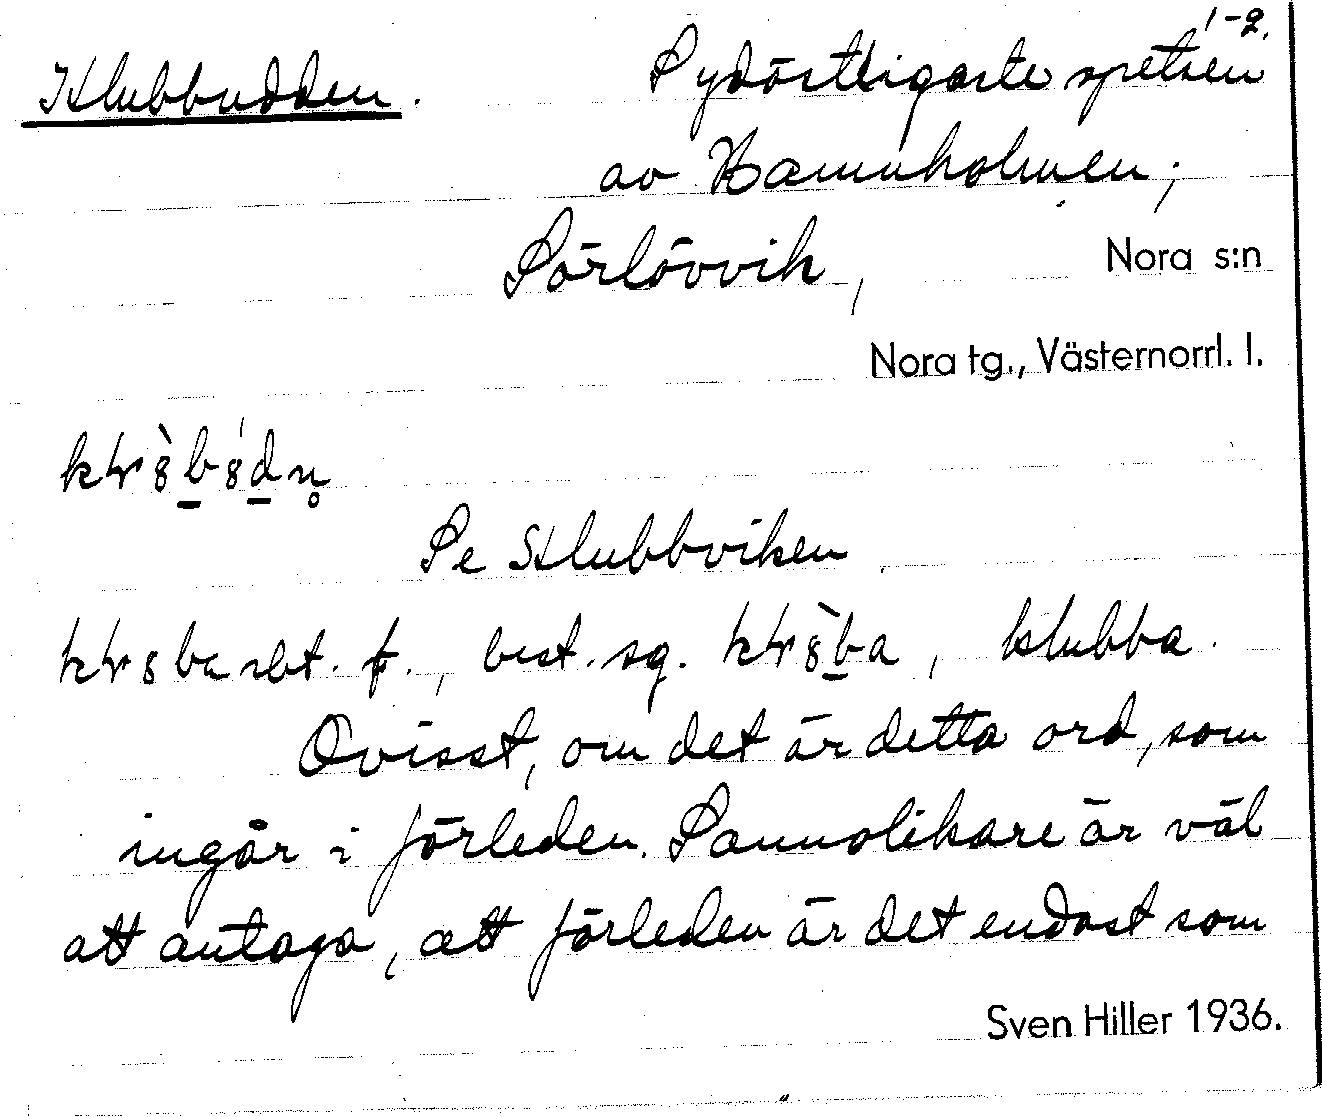 1-2.
Klubbudden. Sydöstligaste spetsen
av Hamnholmen;
Sörlövvik, Nora s:n
Nora tg., Västernorrl. l.
Se Klubbviken
sbt. f., best. sg. , klubba.
Ovisst, om det är detta ord, som
ingår i förleden. Sannolikare är väl
att antaga, att förleden är det endast som
Sven Hiller 1936.